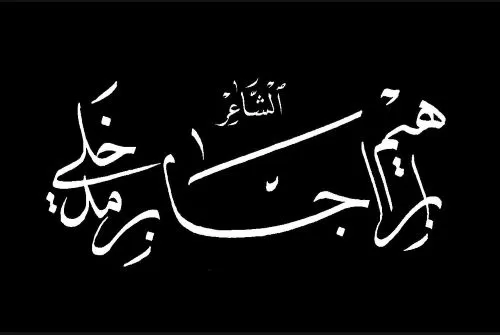 الشَّاعِرْ
إبراهيم جابر مدخلي